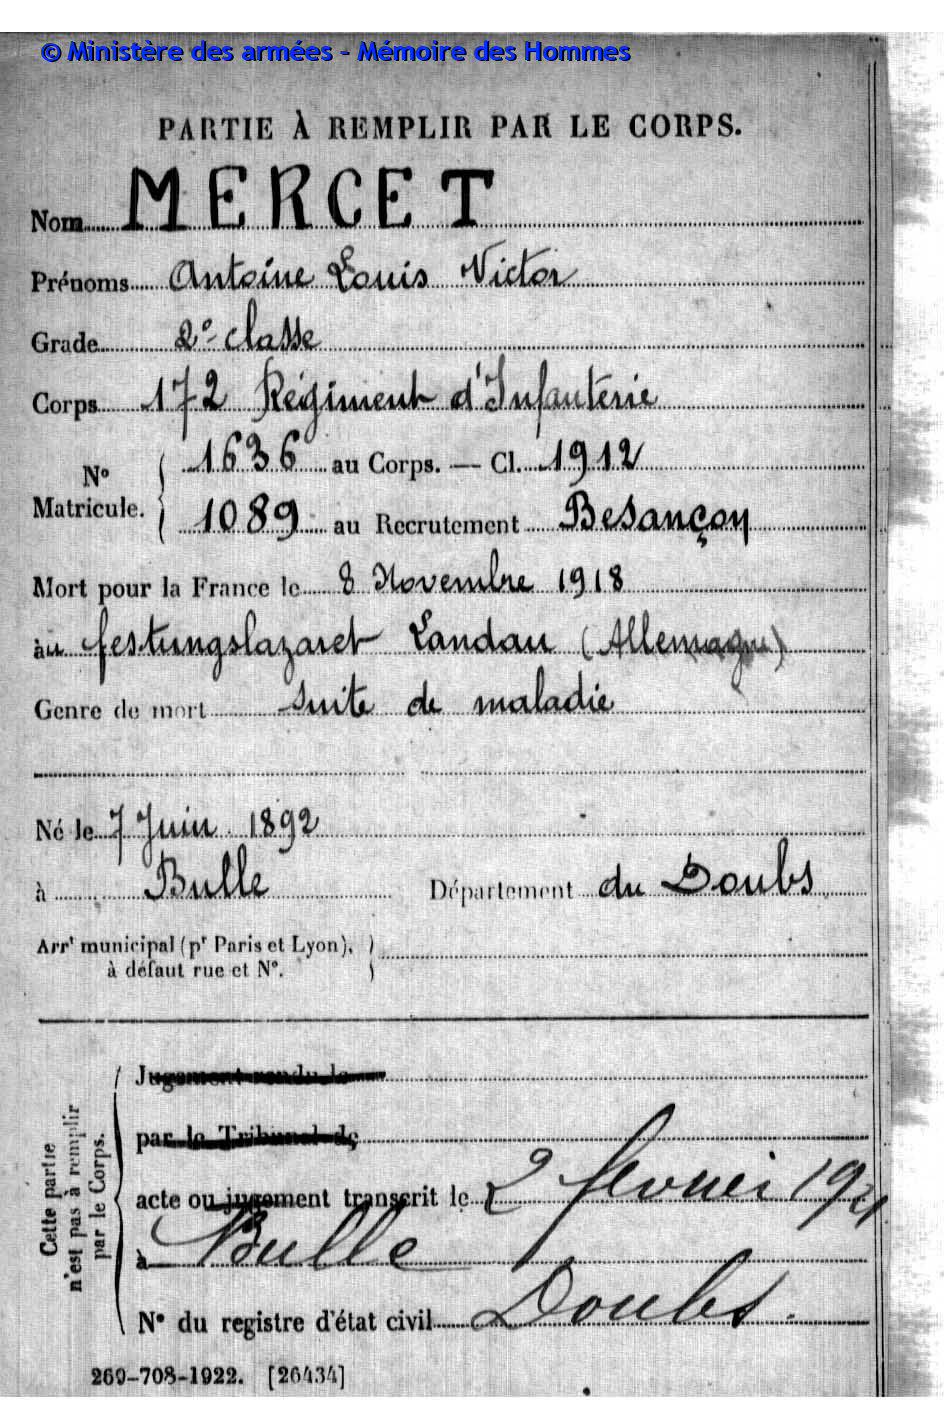 © Ministère des armées - Mémoire des Hommes
PARTIE À REMPLIR PAR LE CORPS.
Nom MERCET
Prénoms Antoine Louis Victor
Grade 2e classe
Corps 172 Régiment d'Infanterie
N° Matricule. 1636 au Corps. — Cl. 1912
1089 au Recrutement Besançon
Mort pour la France le 8 Novembre 1918
au festungslazaret Landau (Allemagne)
Genre de mort suite de maladie
Né le 7 Juin 1892
à Bulle Département du Doubs
Arrt municipal (pr Paris et Lyon),
à défaut rue et N°.
Cette partie
n'est pas à remplir
par le Corps.
Jugement rendu le
par le Tribunal de
acte ou jugement transcrit le 2 février
à Bulle
Doubs.
N° du registre d'état civil
269-708-1922. [26434]